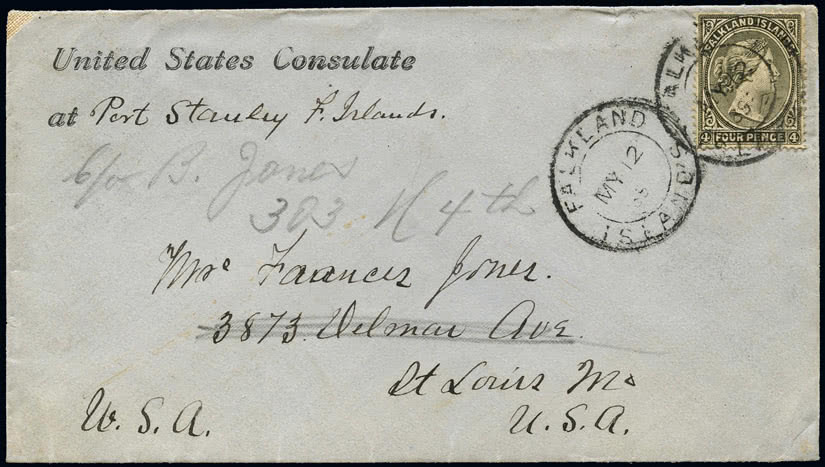 United States Consulate
at Port Stanley F. Islands.
c/o B. Jones
303 N 4th
Mrs Frances Jones.
3873 Delmar Ave.
St Louis Mo
U.S.A.
U.S.A.
FALKLAND ISLANDS
MY 12
FALKLAND ISLANDS
FOUR PENCE
4 4